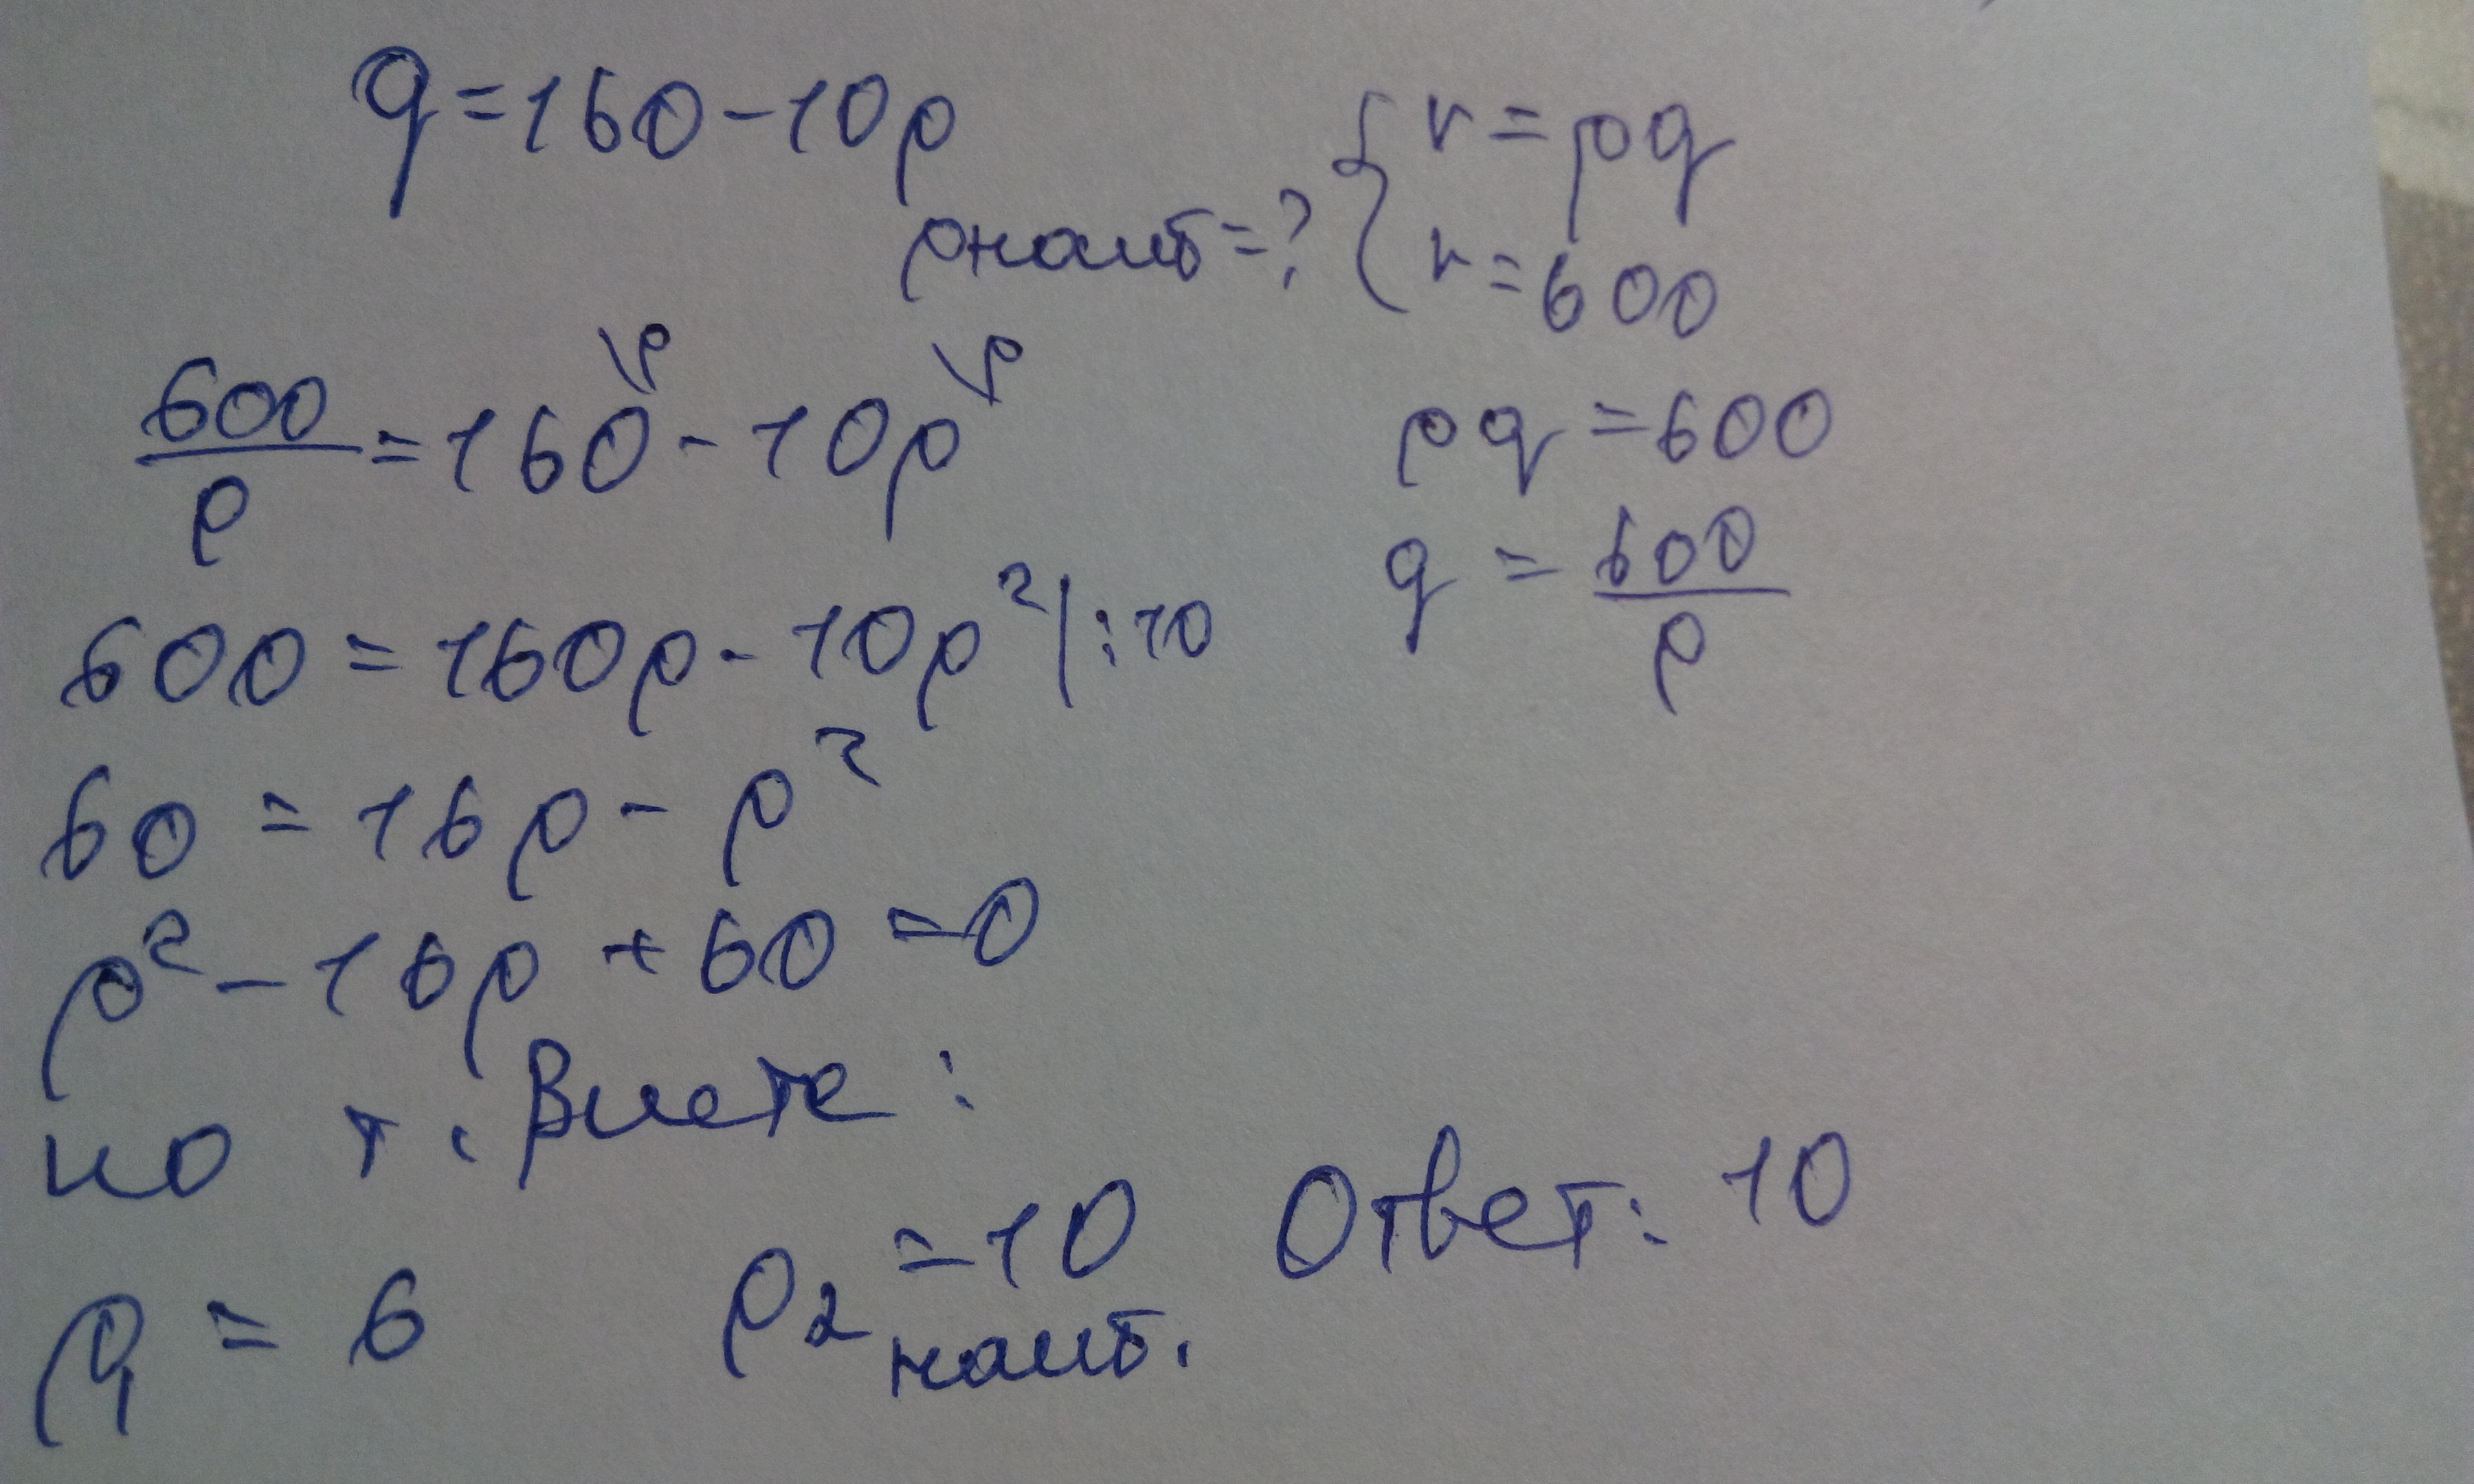 q=160-10p
pнаиб=?
{ r=pq
r=600
600/p=160\p-10p\p
pq=600
q=600/p
600=160p-10p²|:10
60=16p-p²
p²-16p+60=0
по т. Виета:
p₁=6 p₂=10 Ответ: 10
наиб.